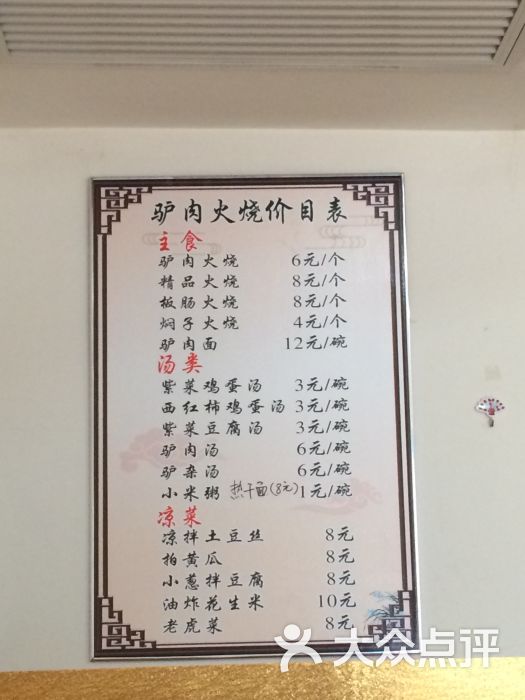 驴肉火烧价目表
主食
驴肉火烧 6元/个
精品火烧 8元/个
板肠火烧 8元/个
焖子火烧 4元/个
驴肉面 12元/碗
汤类
紫菜鸡蛋汤 3元/碗
西红柿鸡蛋汤 3元/碗
紫菜豆腐汤 3元/碗
驴肉汤 6元/碗
驴杂汤 6元/碗
小米粥 热干面(8元) 1元/碗
凉菜
凉拌土豆丝 8元
拍黄瓜 8元
小葱拌豆腐 8元
油炸花生米 10元
老虎菜 8元
大众点评